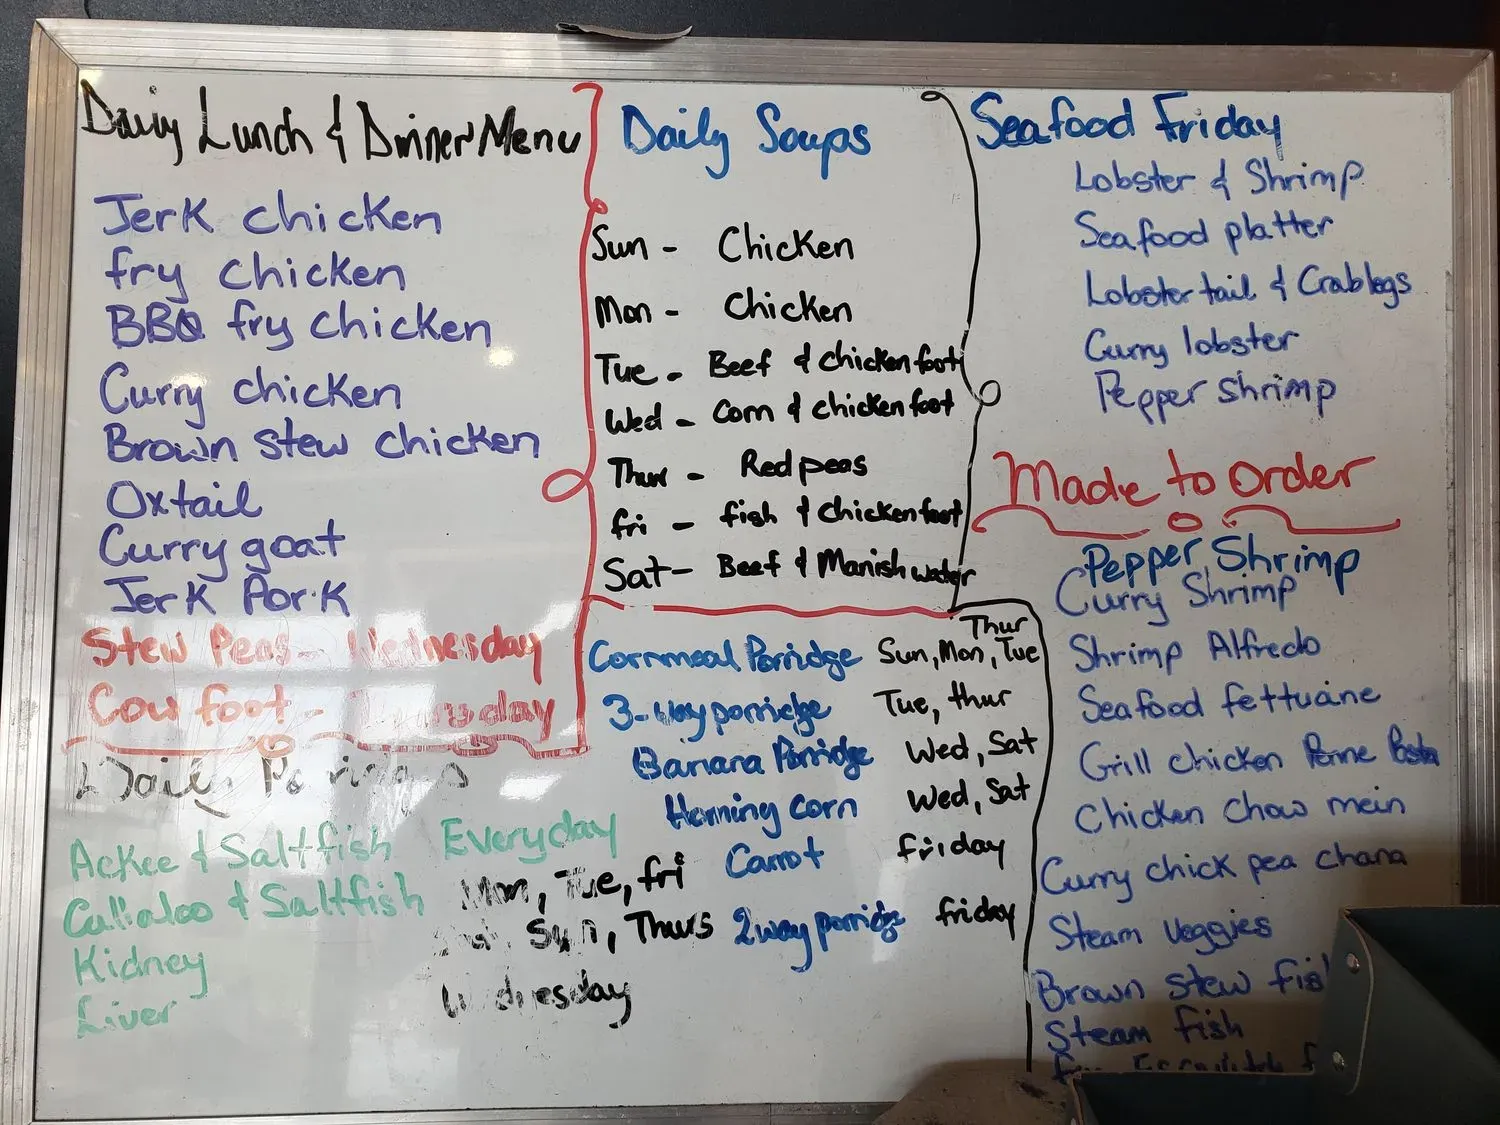 Daily Lunch & Dinner Menu
Jerk chicken
fry chicken
BBQ fry chicken
Curry chicken
Brown stew chicken
Oxtail
Curry goat
Jerk Pork
Stew Peas - Wednesday
Cow foot - Everyday
Daily
Ackee & Saltfish Everyday
Callaloo & Saltfish Mon, Tue, fri
Kidney Sun, Thurs
Liver Wednesday
Daily Soups
Sun - Chicken
Mon - Chicken
Tue - Beef & chicken foot
Wed - Corn & chicken foot
Thur - Red peas
fri - fish & chicken foot
Sat - Beef & Manish water
Cornmeal Porridge Sun, Mon, Tue Thur
3-way porridge Tue, thur
Banana Porridge Wed, Sat
Horning corn Wed, Sat
Carrot friday
2way porridge friday
Seafood Friday
Lobster & Shrimp
Seafood platter
Lobster tail & Crab legs
Curry lobster
Pepper shrimp
Made to order
Pepper Shrimp
Curry Shrimp
Shrimp Alfredo
Seafood fettucine
Grill chicken Penne Pasta
Chicken chow mein
Curry chick pea chana
Steam veggies
Brown stew
Steam fish